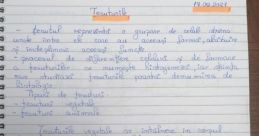 14.09.2021
Țesuturile
- țesutul reprezintă o grupare de celule
unite între ele care au aceeași formă,
și îndeplinesc aceeași funcție
- procesul de diferențiere celulară și de formare
a țesuturilor se numește histogeneză, iar știința
care studiază țesuturile poartă denumirea de
histologie
Tipuri de țesuturi
- țesuturi vegetale
- țesuturi animale
Țesuturile vegetale se întâlnesc în corpul